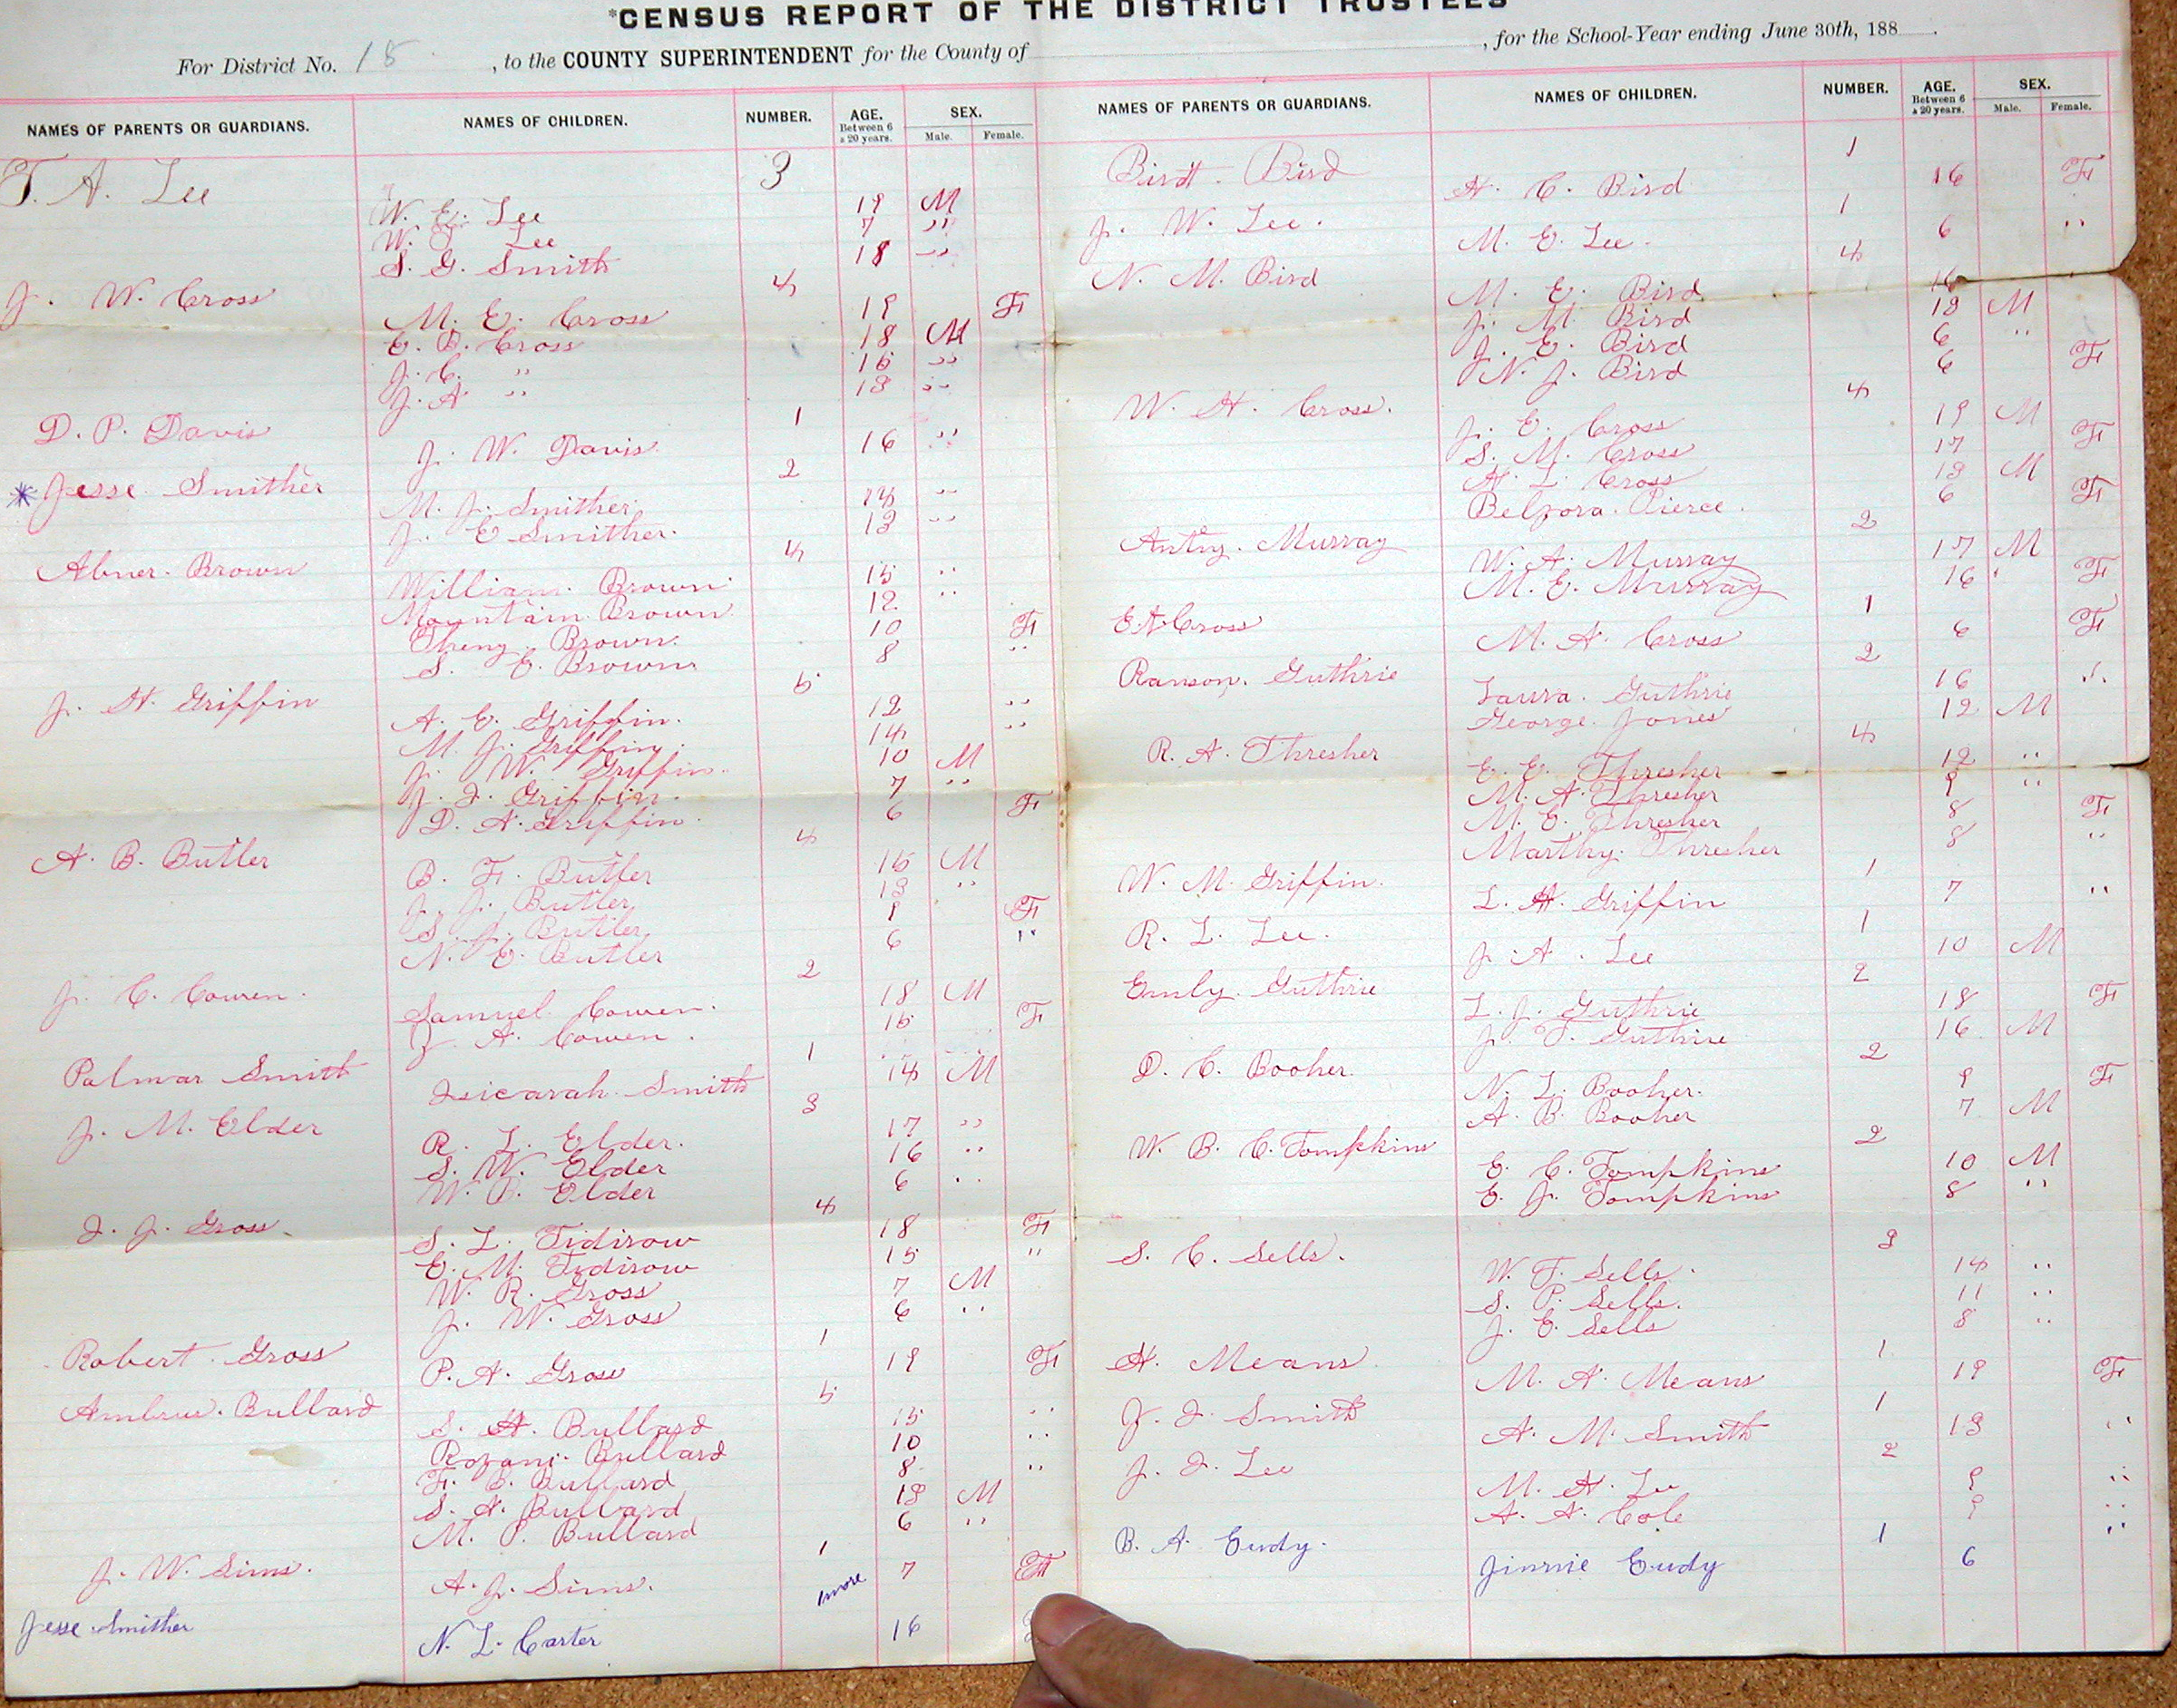 *CENSUS REPORT OF THE DISTRICT TRUSTEES
For District No. 18, to the COUNTY SUPERINTENDENT for the County of , for the School-Year ending June 30th, 188 .
NAMES OF PARENTS OR GUARDIANS. NAMES OF CHILDREN. NUMBER. AGE. Between 6 & 20 years. SEX. Male. Female.
T. A. Lee 3
W. E. Lee 19 M
W. T. Lee 7 "
S. G. Smith 18 "
J. W. Cross 4
M. E. Cross 19 F
E. B. Cross 18 M
J. C. " 15 "
J. A " 13 "
D. P. Davis 1
J. W. Davis 16 "
* Jesse Smither 2
M. J. Smither 14 "
J. E Smither. 13 "
Abner Brown 4
William Brown 15 "
Mountain Brown 12 "
Theny Brown. 10 F
S. E. Brown 8 "
J. H. Griffin 5
A. E. Griffin. 12 "
M. J. Griffin. 14 "
J. W. Griffin. 10 M
J. I. Griffin. 7 "
D. A. Griffin 6 F
A. B. Butler 4
B. F. Butler 15 M
J. J. Butler 13 "
S. J. Butler 9 F
N. E. Butler 6 "
J. C. Cowen. 2
Samuel Cowen. 18 M
J. A. Cowen. 15 F
Palmar Smith 1
Isicarah Smith 14 M
J. M. Elder 3
R. L. Elder. 17 "
S. W. Elder 16 "
W. P. Elder 6 "
I. J. Gross 4
S. L. Tidirow 18 F
E. M. Tidirow 15 "
W. R. Gross 7 M
J. W. Gross 6 "
Robert Gross 1
P. A. Gross 19 F
Ambrus. Bullard 5
S. H. Bullard 15 "
Rozani Bullard 10 "
F. E. Bullard 8 "
S. A. Bullard 13 M
M. P. Bullard 6 "
J. W. Sims. 1
A. J. Sims. 7 F
Jesse Smither 1 more
N. L. Carter 16
NAMES OF PARENTS OR GUARDIANS. NAMES OF CHILDREN. NUMBER. AGE. Between 6 & 20 years. SEX. Male. Female.
Birdt. Bird 1
H. C. Bird 16 F
J. W. Lee. 1
M. E. Lee. 6 "
N. M. Bird 4
M. E. Bird 16
J. M. Bird 13 M
J. E. Bird 6 "
N. J. Bird 6 F
W. H. Cross. 4
J. E. Cross 19 M
S. M. Cross 17 F
H. L. Cross 13 M
Belzora. Pierce. 6 F
Antny. Murray 2
W. A. Murray 17 M
M. E. Murray 16 F
E A Cross 1
M. A. Cross 6 F
Ranson. Guthrie 2
Laura. Guthrie 16 "
George Jones 12 M
R. A. Thresher 4
E. E. Thresher 12 "
M. A. Thresher 9 "
M. E. Thresher 8 F
Marthy. Thresher 8 "
W. M. Griffin. 1
L. H. Griffin 7 "
R. L. Lee. 1
J. A. Lee 10 M
Emly. Guthrie 2
L. J. Guthrie 18 F
J. T. Guthrie 16 M
D. C. Booher. 2
N. L. Booher. 9 F
A. B. Booher 7 M
W. B. C. Tompkins 2
E. C. Tompkins 10 M
E. J. Tompkins 8 "
S. C. Sells. 3
W. T. Sells. 14 "
S. P. Sells. 11 "
J. E. Sells 8 "
H. Means 1
M. A. Means 19 F
J. I. Smith 1
A. M. Smith 13 "
J. I. Lee 2
M. H. Lee 9 "
A. A. Cole 9 "
B. A. Eudy. 1 "
Jinnie Eudy 6